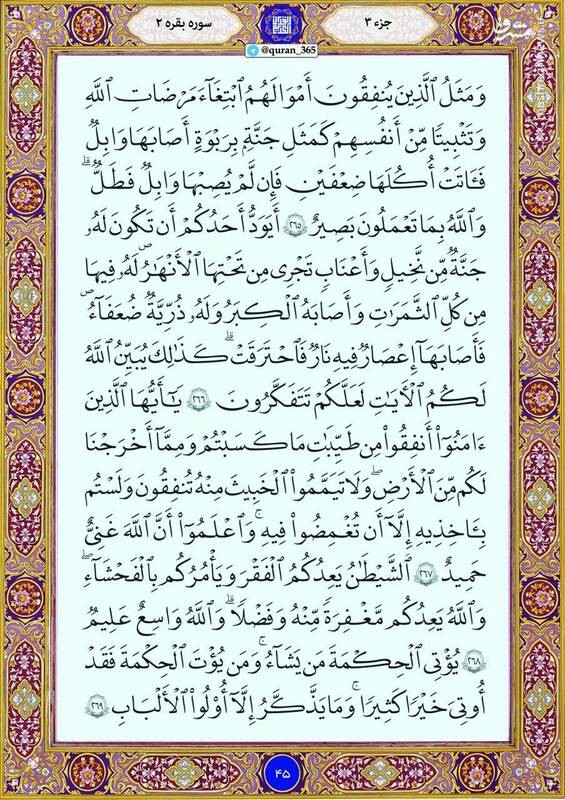 جزء ۳
سوره بقره ۲
مشرق
@quran_365
وَمَثَلُ ٱلَّذِينَ يُنفِقُونَ أَمْوَالَهُمُ ٱبْتِغَآءَ مَرْضَاتِ ٱللَّهِ
وَتَثْبِيتًا مِّنْ أَنفُسِهِمْ كَمَثَلِ جَنَّةٍ بِرَبْوَةٍ أَصَابَهَا وَابِلٌ
فَـَٔاتَتْ أُكُلَهَا ضِعْفَيْنِ فَإِن لَّمْ يُصِبْهَا وَابِلٌ فَطَلٌّ ۗ
وَٱللَّهُ بِمَا تَعْمَلُونَ بَصِيرٌ ۝٢٦٥ أَيَوَدُّ أَحَدُكُمْ أَن تَكُونَ لَهُۥ
جَنَّةٌ مِّن نَّخِيلٍ وَأَعْنَابٍ تَجْرِى مِن تَحْتِهَا ٱلْأَنْهَـٰرُ لَهُۥ فِيهَا
مِن كُلِّ ٱلثَّمَرَٰتِ وَأَصَابَهُ ٱلْكِبَرُ وَلَهُۥ ذُرِّيَّةٌ ضُعَفَآءُ
فَأَصَابَهَآ إِعْصَارٌ فِيهِ نَارٌ فَٱحْتَرَقَتْ ۗ كَذَٰلِكَ يُبَيِّنُ ٱللَّهُ
لَكُمُ ٱلْـَٔايَـٰتِ لَعَلَّكُمْ تَتَفَكَّرُونَ ۝٢٦٦ يَـٰٓأَيُّهَا ٱلَّذِينَ
ءَامَنُوٓا۟ أَنفِقُوا۟ مِن طَيِّبَـٰتِ مَا كَسَبْتُمْ وَمِمَّآ أَخْرَجْنَا
لَكُم مِّنَ ٱلْأَرْضِ ۖ وَلَا تَيَمَّمُوا۟ ٱلْخَبِيثَ مِنْهُ تُنفِقُونَ وَلَسْتُم
بِـَٔاخِذِيهِ إِلَّآ أَن تُغْمِضُوا۟ فِيهِ ۚ وَٱعْلَمُوٓا۟ أَنَّ ٱللَّهَ غَنِىٌّ
حَمِيدٌ ۝٢٦٧ ٱلشَّيْطَـٰنُ يَعِدُكُمُ ٱلْفَقْرَ وَيَأْمُرُكُم بِٱلْفَحْشَآءِ ۖ
وَٱللَّهُ يَعِدُكُم مَّغْفِرَةً مِّنْهُ وَفَضْلًا ۗ وَٱللَّهُ وَٰسِعٌ عَلِيمٌ
۝٢٦٨ يُؤْتِى ٱلْحِكْمَةَ مَن يَشَآءُ ۚ وَمَن يُؤْتَ ٱلْحِكْمَةَ فَقَدْ
أُوتِىَ خَيْرًا كَثِيرًا ۗ وَمَا يَذَّكَّرُ إِلَّآ أُو۟لُوا۟ ٱلْأَلْبَـٰبِ ۝٢٦٩
۴۵